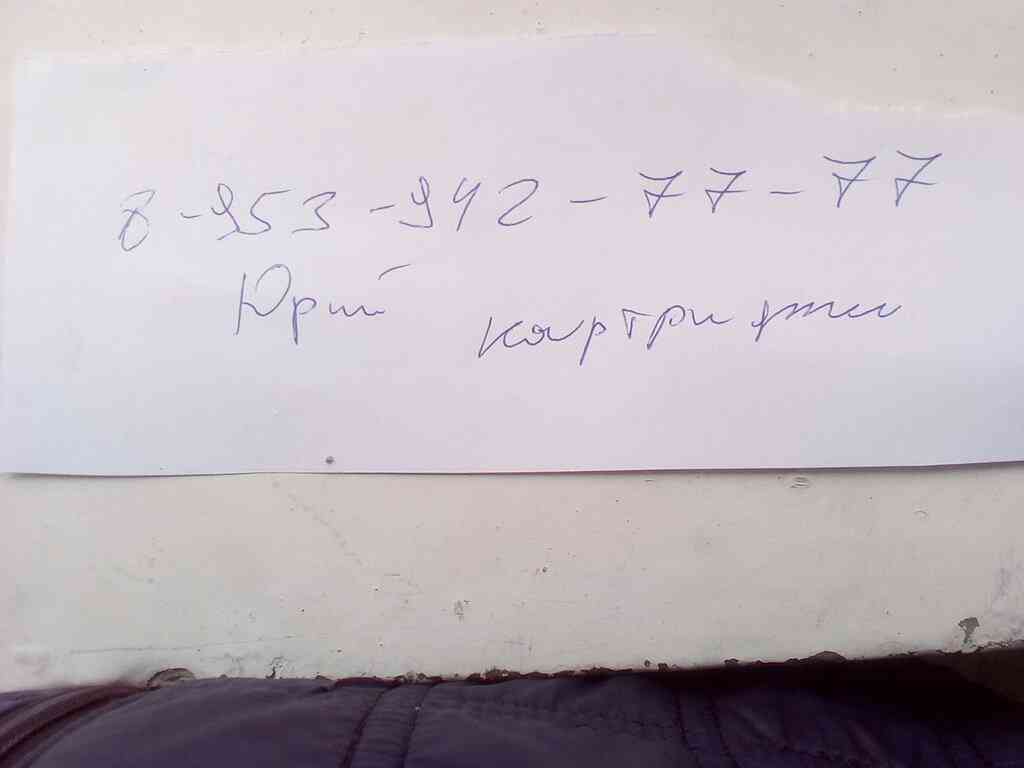 8-953-942-77-77
Юрий картриджи